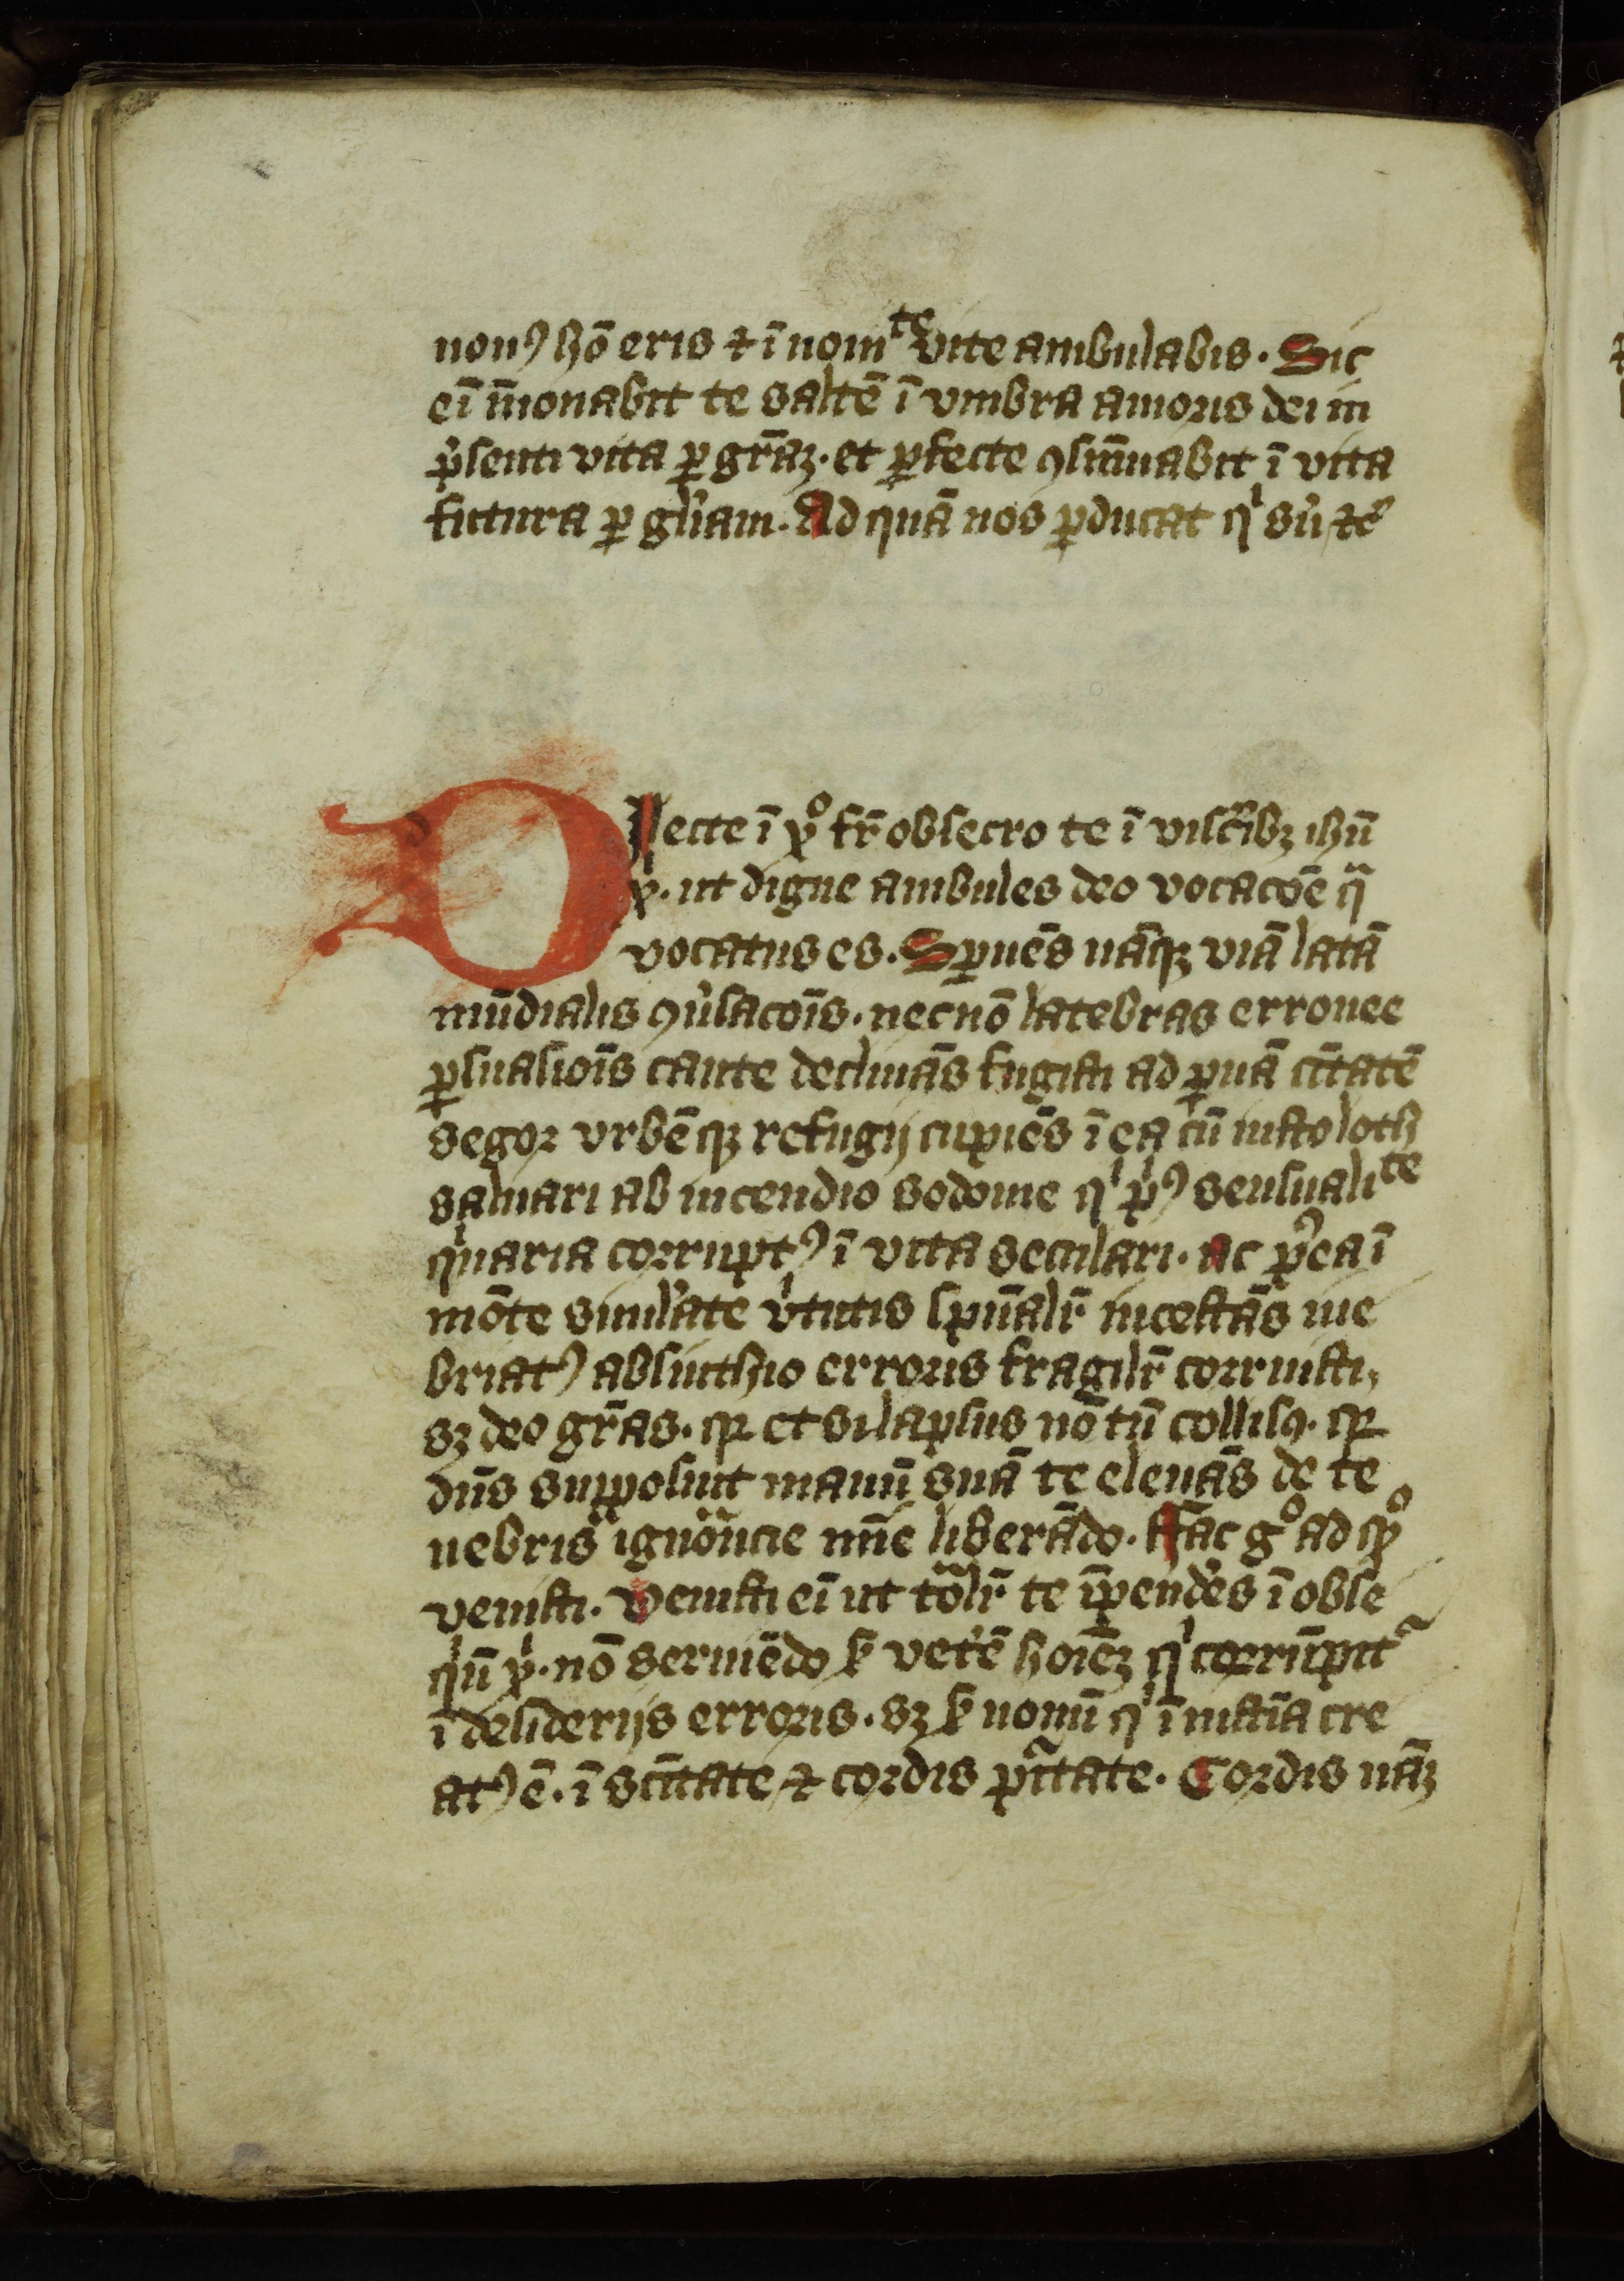 nouꝰ hō eris ⁊ ī nouiᵗᵉ vite ambulabis. Sic
eī īnouabit te saltē ī vmbra amoris dei in
p̄senti vita ꝑ gr̄aꝫ. et ꝑfecte ꝯsūmabit ī vita
futura ꝑ gl̄iam. Ad quā nos ꝑducat qͥ sū ⁊c̄
Dilecte ī xͦ fr̄ obsecro te ī viscībꝫ ihū
xͥ. ut digne ambules deo vocacōe qͣ
vocatus es. Spnēs nāqꝫ viā latā
mūdialis ꝯūsacōis. necnō latebras erronee
ꝑsuasiōis caute declinās fugisti ad ꝑuā cītatē
segor vrbēqꝫ refugij cupiēs ī ea cū iusto loth
saluari ab incendio sodome qͥ pͥꝰ sensualiᵗᵉ
qͥnaria corruptꝰ ī vita seculari. ac pꝰea ī
mōte simul̄ate v̄tutis sp̄ualr̄ incestās ine
briatꝰ absinthio erroris fragilr̄ corruisti,
sꝫ deo gr̄as. qꝛ et si lapsus nō tn̄ collisꝰ. qꝛ
dn̄s supposuit manū suā te eleuās de te
nebris ignōncie mīe liberādo. Hac gͦ ad xͦ
venisti. Venisti eī ut tōlr̄ te īpenderēs ī obse
qͥū xͥ. nō seruiēdo ẜm vetēē hoīeꝫ qͥ corrūpit᷑
ī desiderijs erroris. sꝫ ẜm nouū qͥ ī iusticīa cre
atꝰ ē. ī sc̄itate ⁊ cordis pͥtate. Cordis nāꝫ